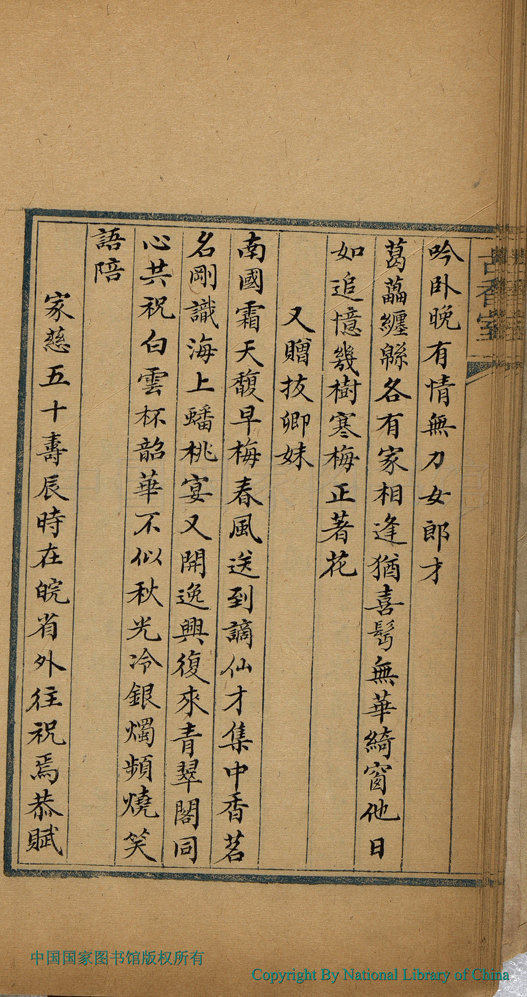 古香室
吟卧晚有情無力女郎才
葛藟纏緜各有家相逢猶喜鬢無華綺窗他日
如追憶幾樹寒梅正著花
又贈扙卿妹
南國霜天馥早梅春風送到謫仙才集中香茗
名剛識海上蟠桃宴又開逸興復來青翠閣同
心共祝白雲杯韶華不似秋光冷銀燭頻燒笑
語陪
家慈五十壽辰時在皖省外往祝焉恭賦
中国国家图书馆版权所有
Copyright By National Library of China